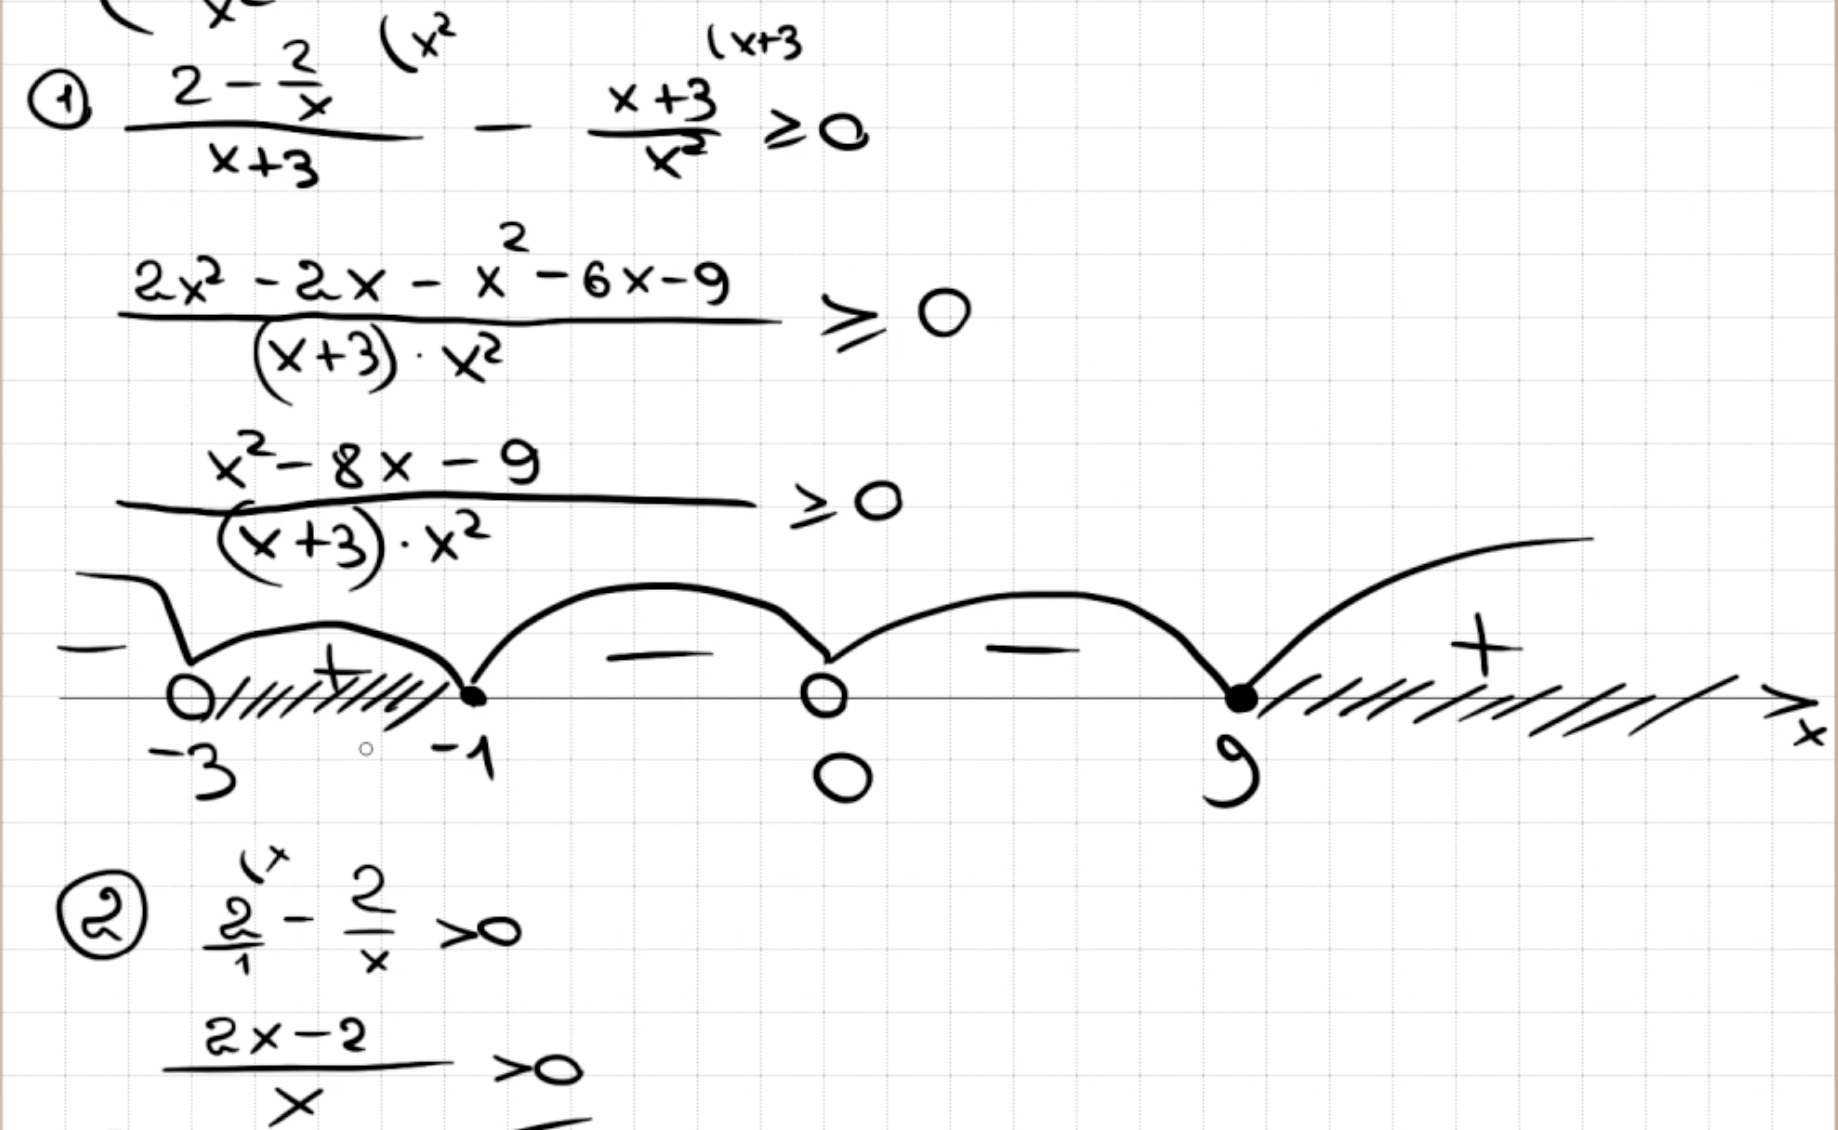 ( x²
① (2 - 2/x)/(x+3) (x² - (x+3)/x² (x+3 ≥ 0
(2x² - 2x - x² - 6x - 9)/((x+3) · x²) ≥ 0
(x² - 8x - 9)/((x+3) · x²) ≥ 0
− + − − +
-3 -1 0 9 x
② 2/1 (x - 2/x > 0
(2x - 2)/x > 0